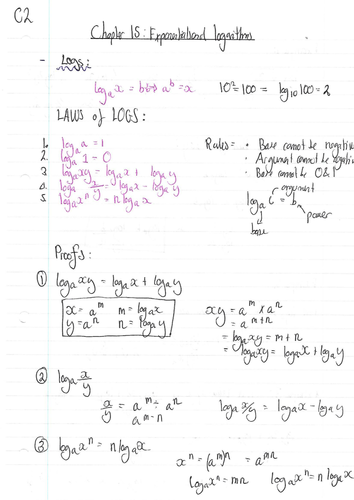 C2
Chapter 15: Exponentials and logarithms
- Logs:
logₐx = b ⟺ a^b = x    10² = 100 = log₁₀100 = 2
LAWS of LOGS:
1. logₐa = 1
2. logₐ1 = 0
3. logₐxy = logₐx + logₐy
4. logₐ x/y = logₐx - logₐy
5. logₐxⁿ = n logₐx
Rules = • Base cannot be negative
• Argument cannot be negative
• Base cannot be 0 & 1
argument
logₐ c = b
power
base
Proofs:
① logₐxy = logₐx + logₐy
x = a^m    m = logₐx
y = a^n    n = logₐy
xy = a^m × a^n
= a^(m+n)
= logₐxy = m + n
= logₐxy = logₐx + logₐy
② logₐ x/y
x/y = a^m ÷ a^n
a^(m-n)
logₐx/y = logₐx - logₐy
③ logₐxⁿ = n logₐx
xⁿ = (a^m)^n = a^(mn)
logₐxⁿ = mn    logₐxⁿ = n logₐx